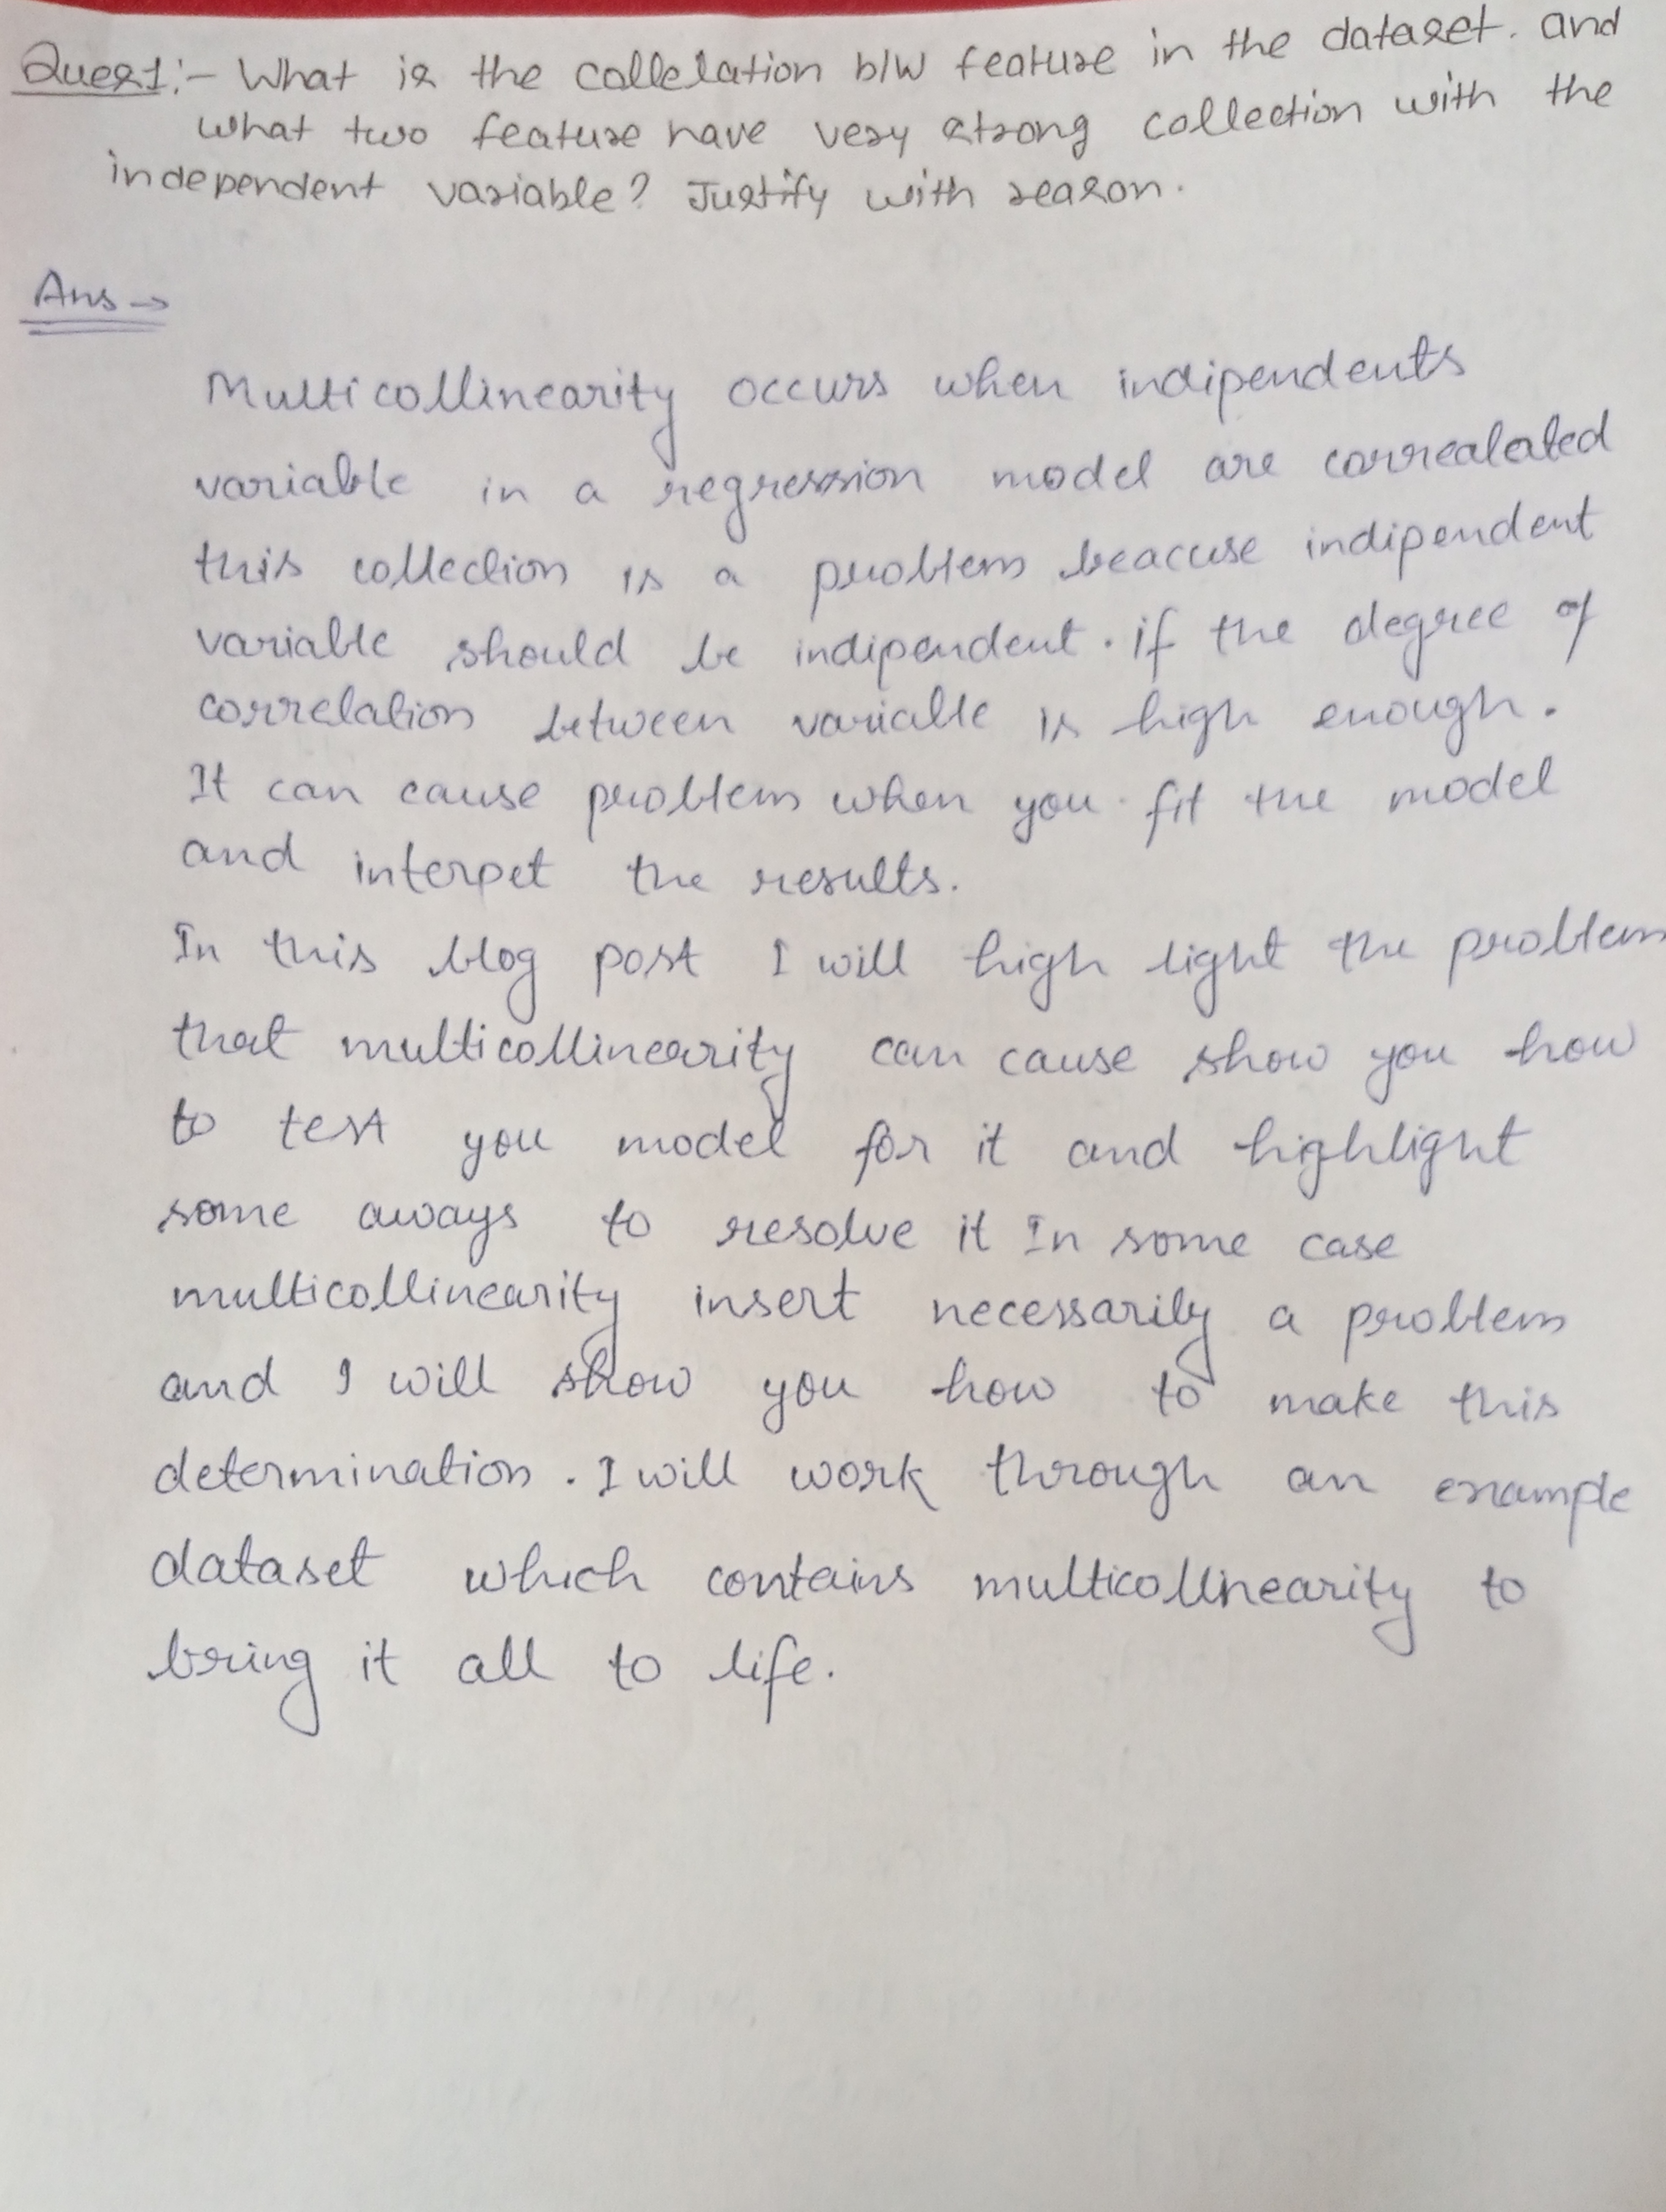 Ques1:- What is the collelation b/w feature in the dataset. and
what two feature have very strong collection with the
independent variable? Justify with reason.
Ans →
Multicollinearity occurs when indipendents
variable in a regression model are correalated
this collection is a problem beacuse indipendent
variable should be indipendent. if the degree of
correlation between variable is high enough.
It can cause problem when you fit the model
and interpet the results.
In this blog post I will high light the problem
that multicollinearity can cause show you how
to test you model for it and highlight
some aways to resolve it In some case
multicollinearity insert necessarily a problem
and I will show you how to make this
determination. I will work through an example
dataset which contains multicollinearity to
bring it all to life.